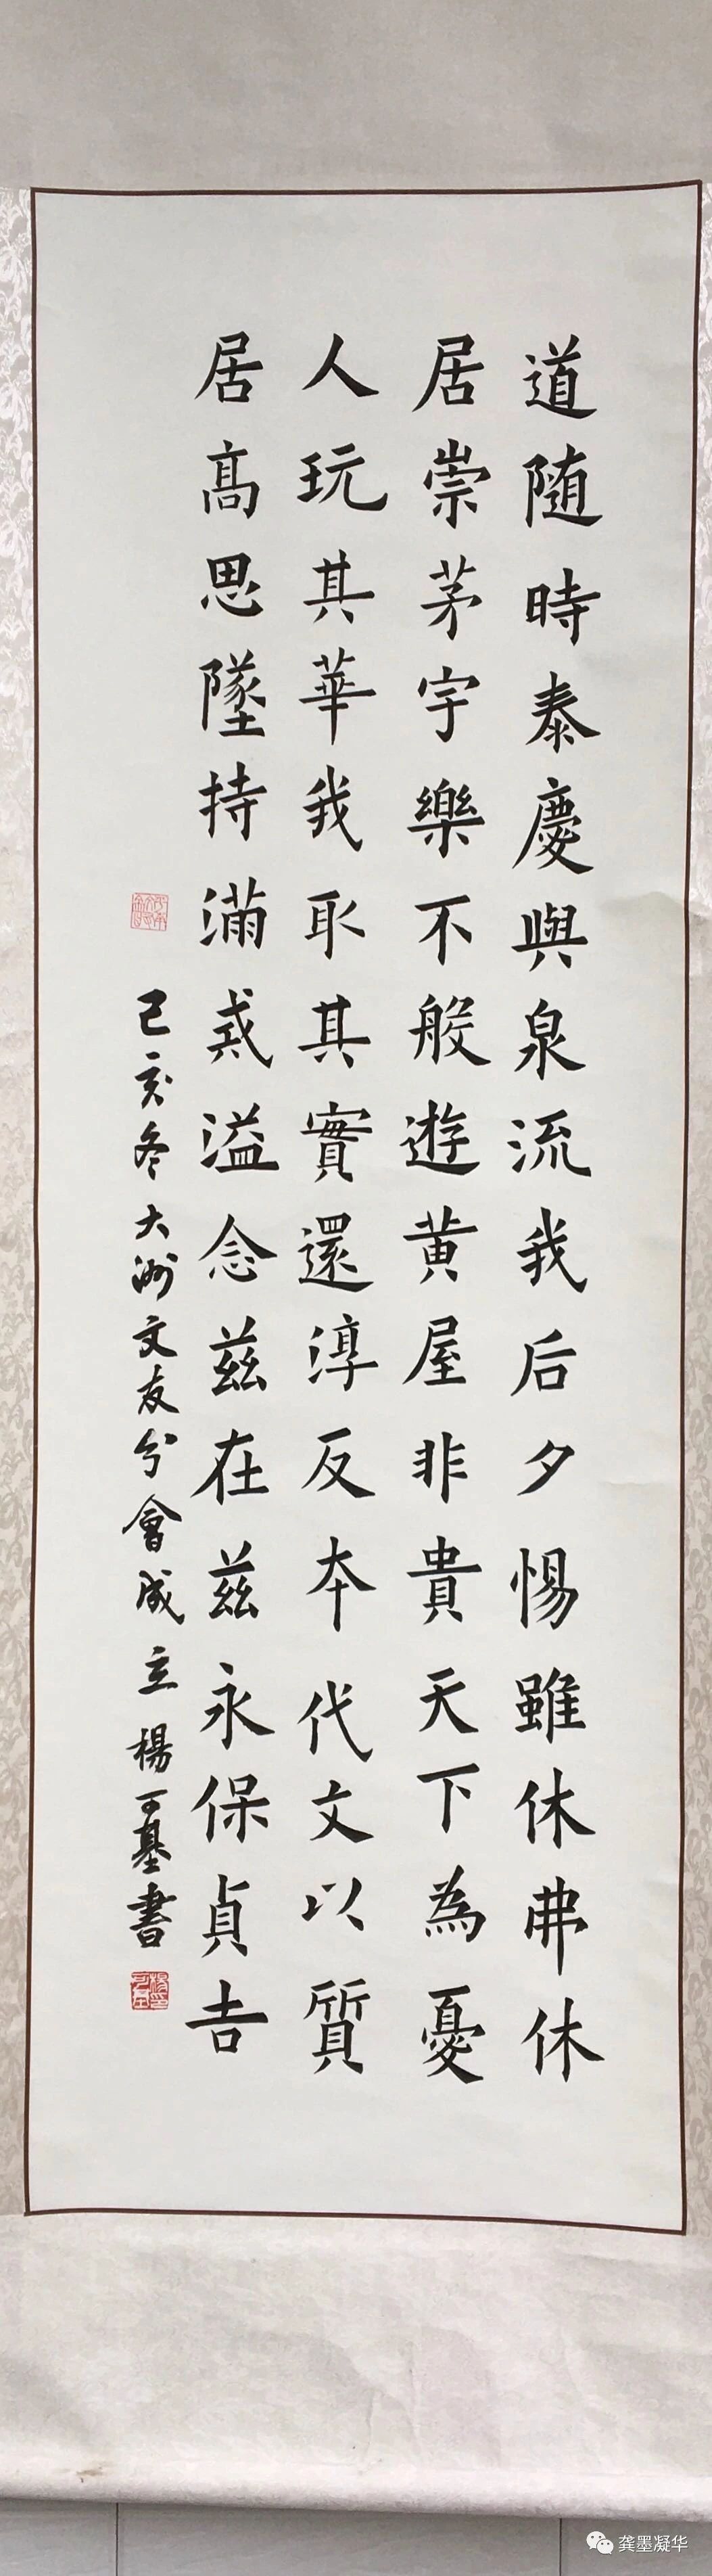 道随時泰慶與泉流我后夕惕雖休弗休
居崇茅宇樂不般遊黃屋非貴天下為憂
人玩其華我取其實還淳反本代文以質
居高思墜持滿戒溢念茲在茲永保貞吉
己亥冬大洲文友分會成立楊可基書
龚墨凝华